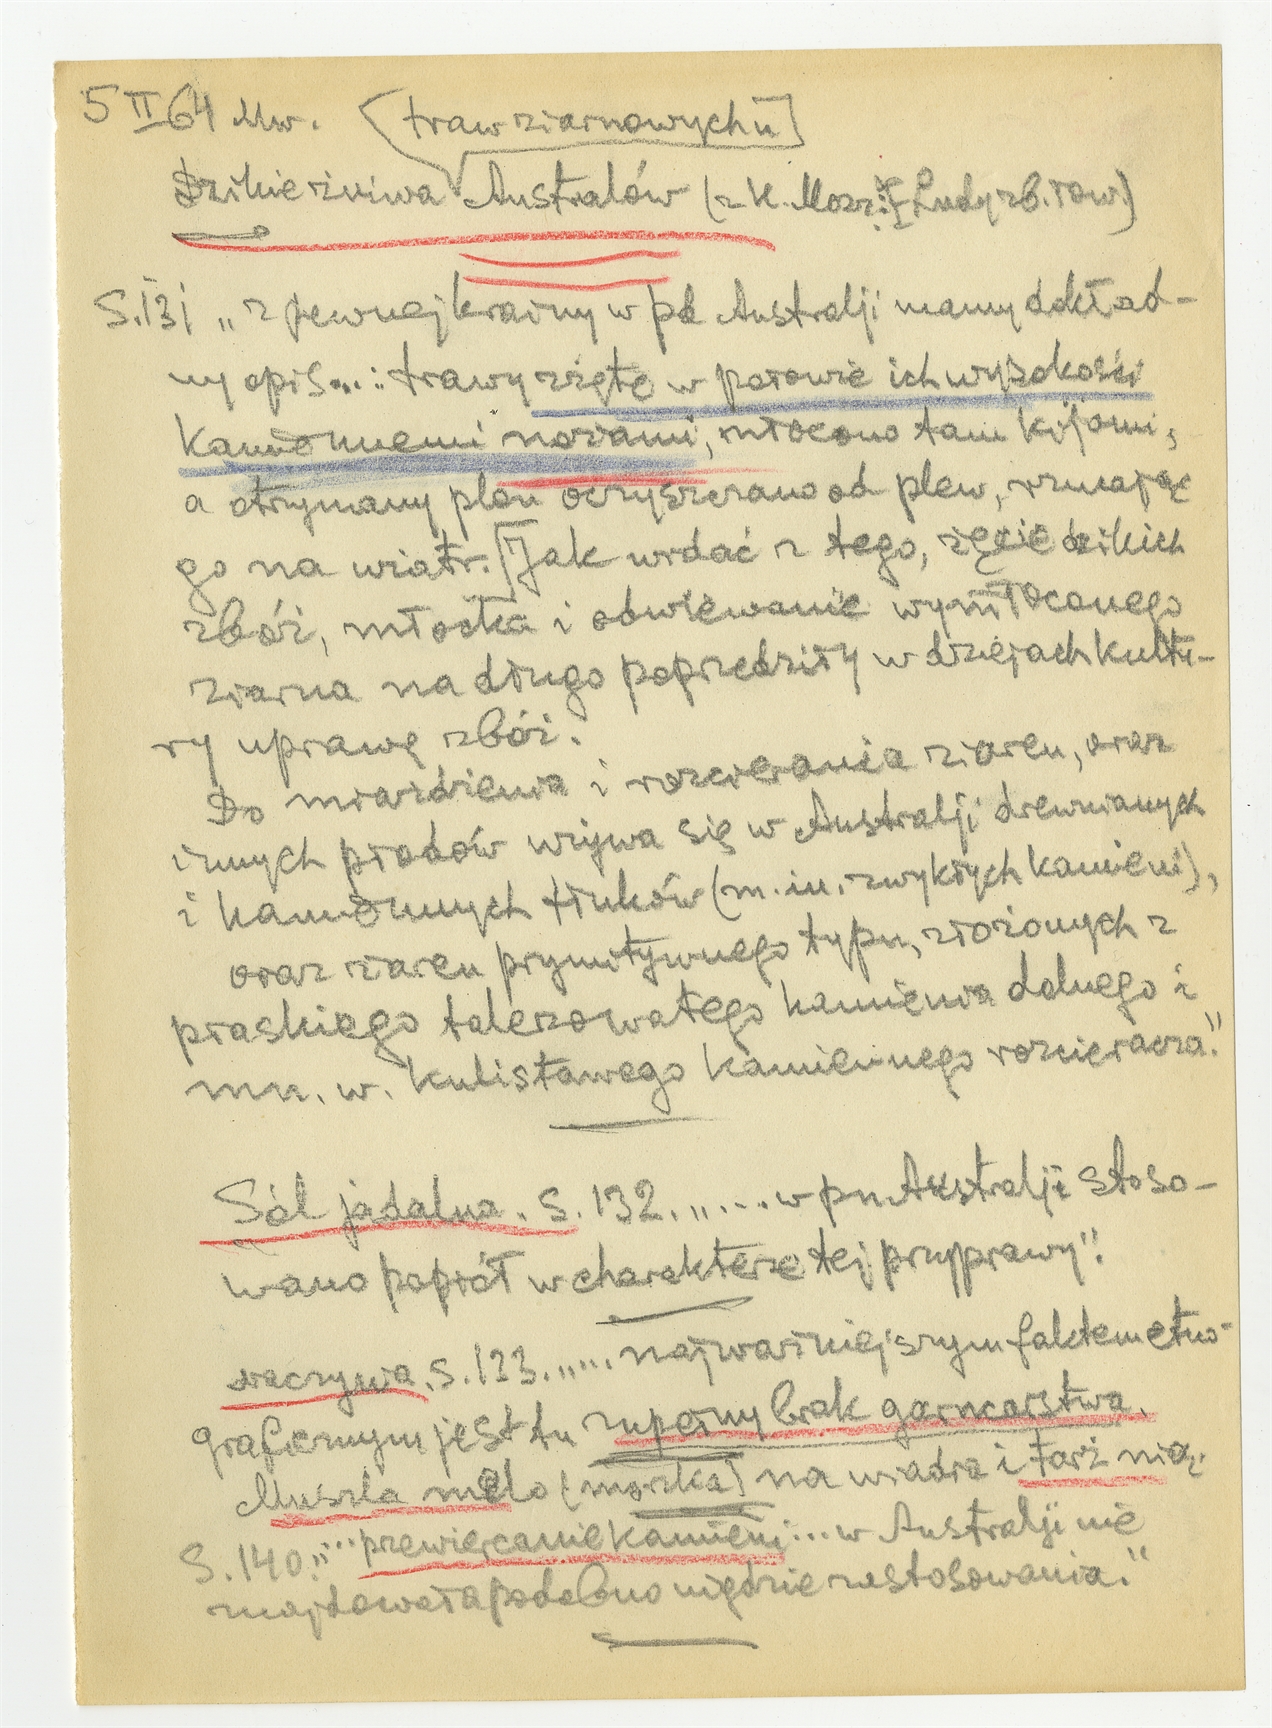 5 II 64 Mw. [traw ziarnowych "]
Dzikie żniwa Australów (z K. Mosz: Ludy zb. row.)
S. 131 „z pewnej krainy w pd Australji mamy dokład-
ny opis... : trawy zżęte w połowie ich wysokości
kamiennemi nożami, młócono tam kijami,
a otrzymany plon oczyszczano od plew, rzucając
go na wiatr. [Jak widać z tego, żęcie dzikich
zbóż, młócka i odwiewanie wymłóconego
ziarna na długo poprzedziły w dziejach kultu-
ry uprawę zbóż.
Do miażdżenia i rozcierania ziaren, oraz
innych płodów używa się w Australji drewnianych
i kamiennych tłuków (m. in. zwykłych kamieni),
oraz żaren prymitywnego typu, złożonych z
płaskiego talerzowatego kamienia dolnego i
mn. w. kulistawego kamiennego rozcieracza."
Sól jadalna. S. 132. „... w pn Australji stoso-
wano popiół w charakterze tej przyprawy".
naczynia. S. 133. „... najważniejszym faktem etno-
graficznym jest tu zupełny brak garncarstwa.
Muszla melo [morska] na wiadra i
S. 140. „... przewiercanie kamieni... w Australji nie
znajdowała podobno nigdzie zastosowania."